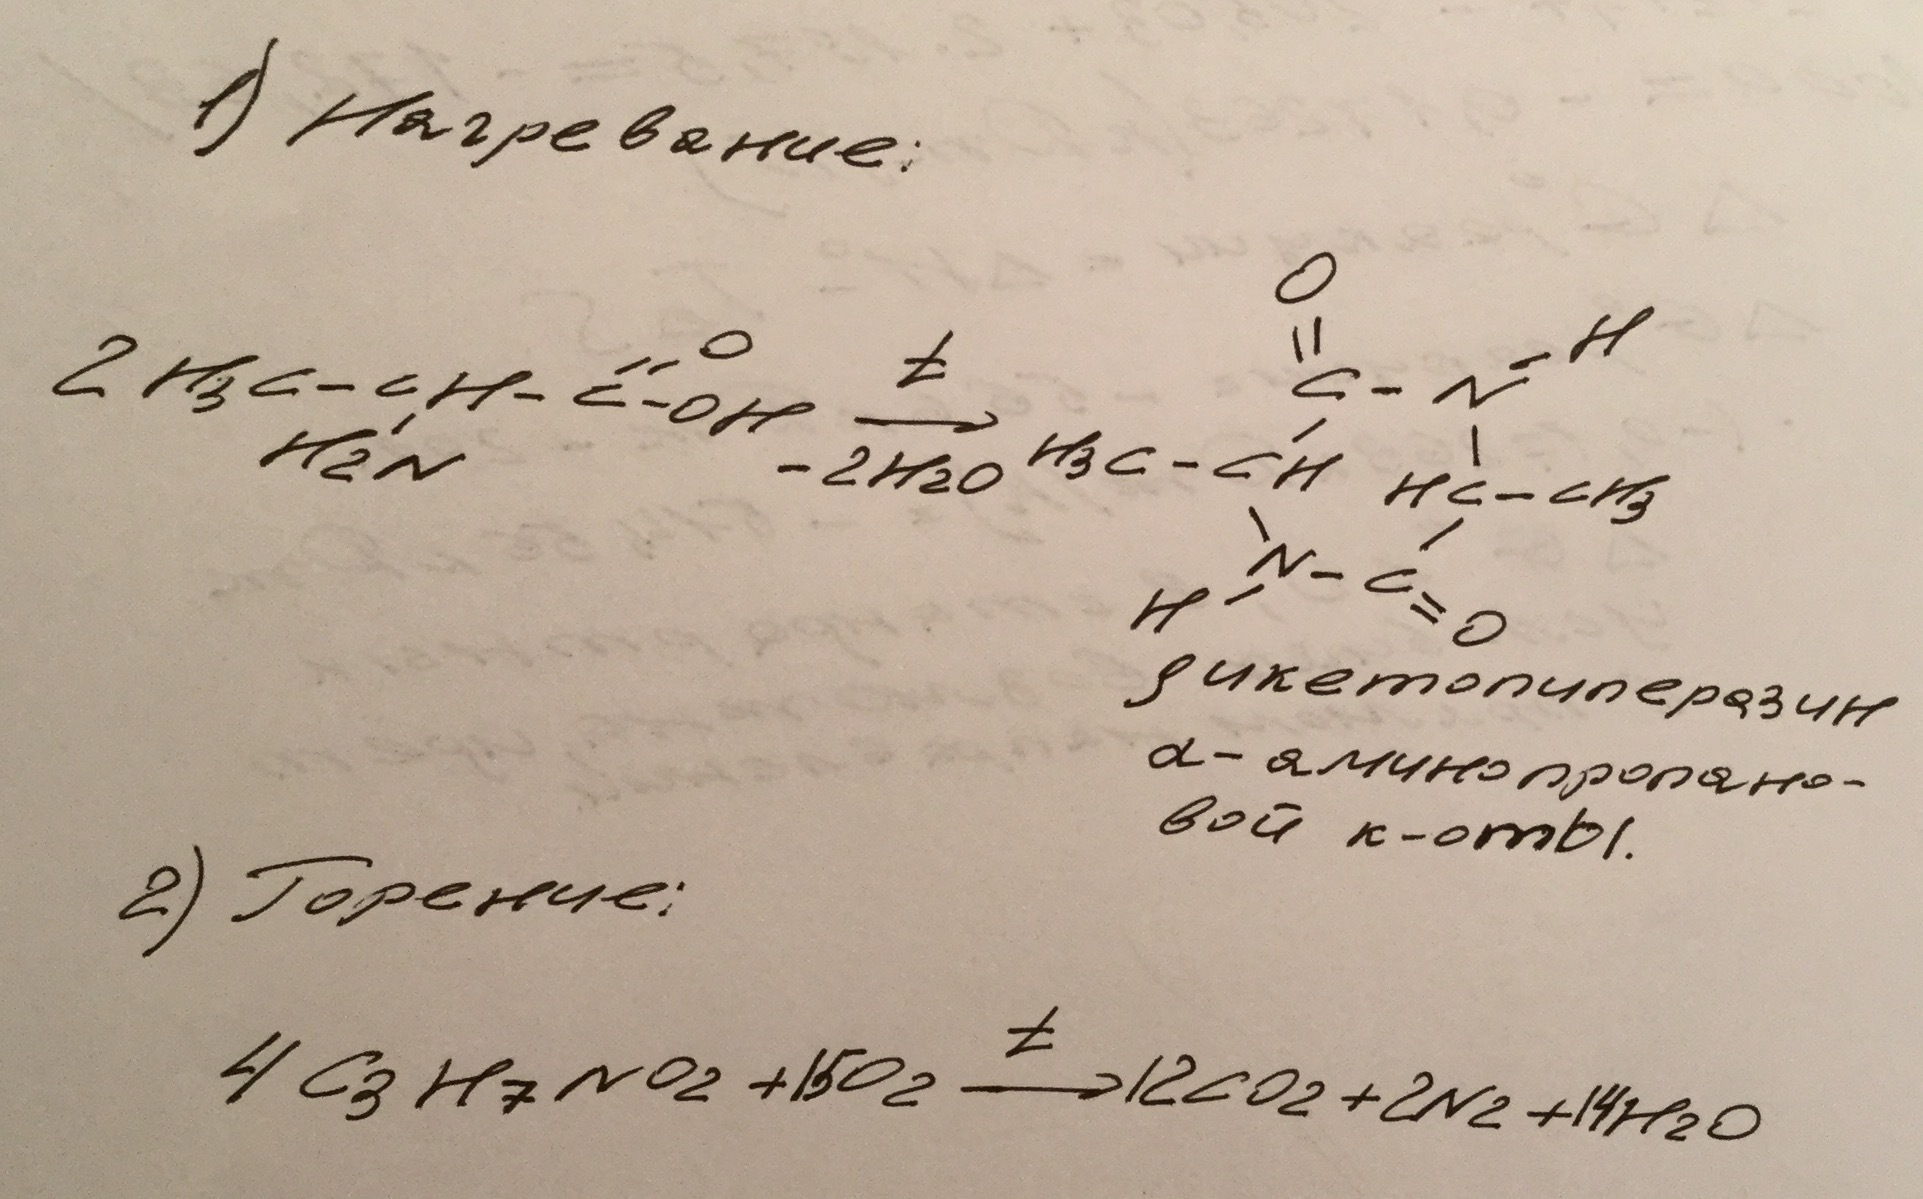 1) Нагревание:
O
2 H3C-CH-C=O-OH t → -2H2O
H2N
C-N-H
H3C-CH HC-CH3
H-N-C=O
дикетопиперазин
α-аминопропано-
вой к-оты.
2) Горение:
t
4 C3H7NO2 +15O2 → 12CO2 + 2N2 + 14H2O